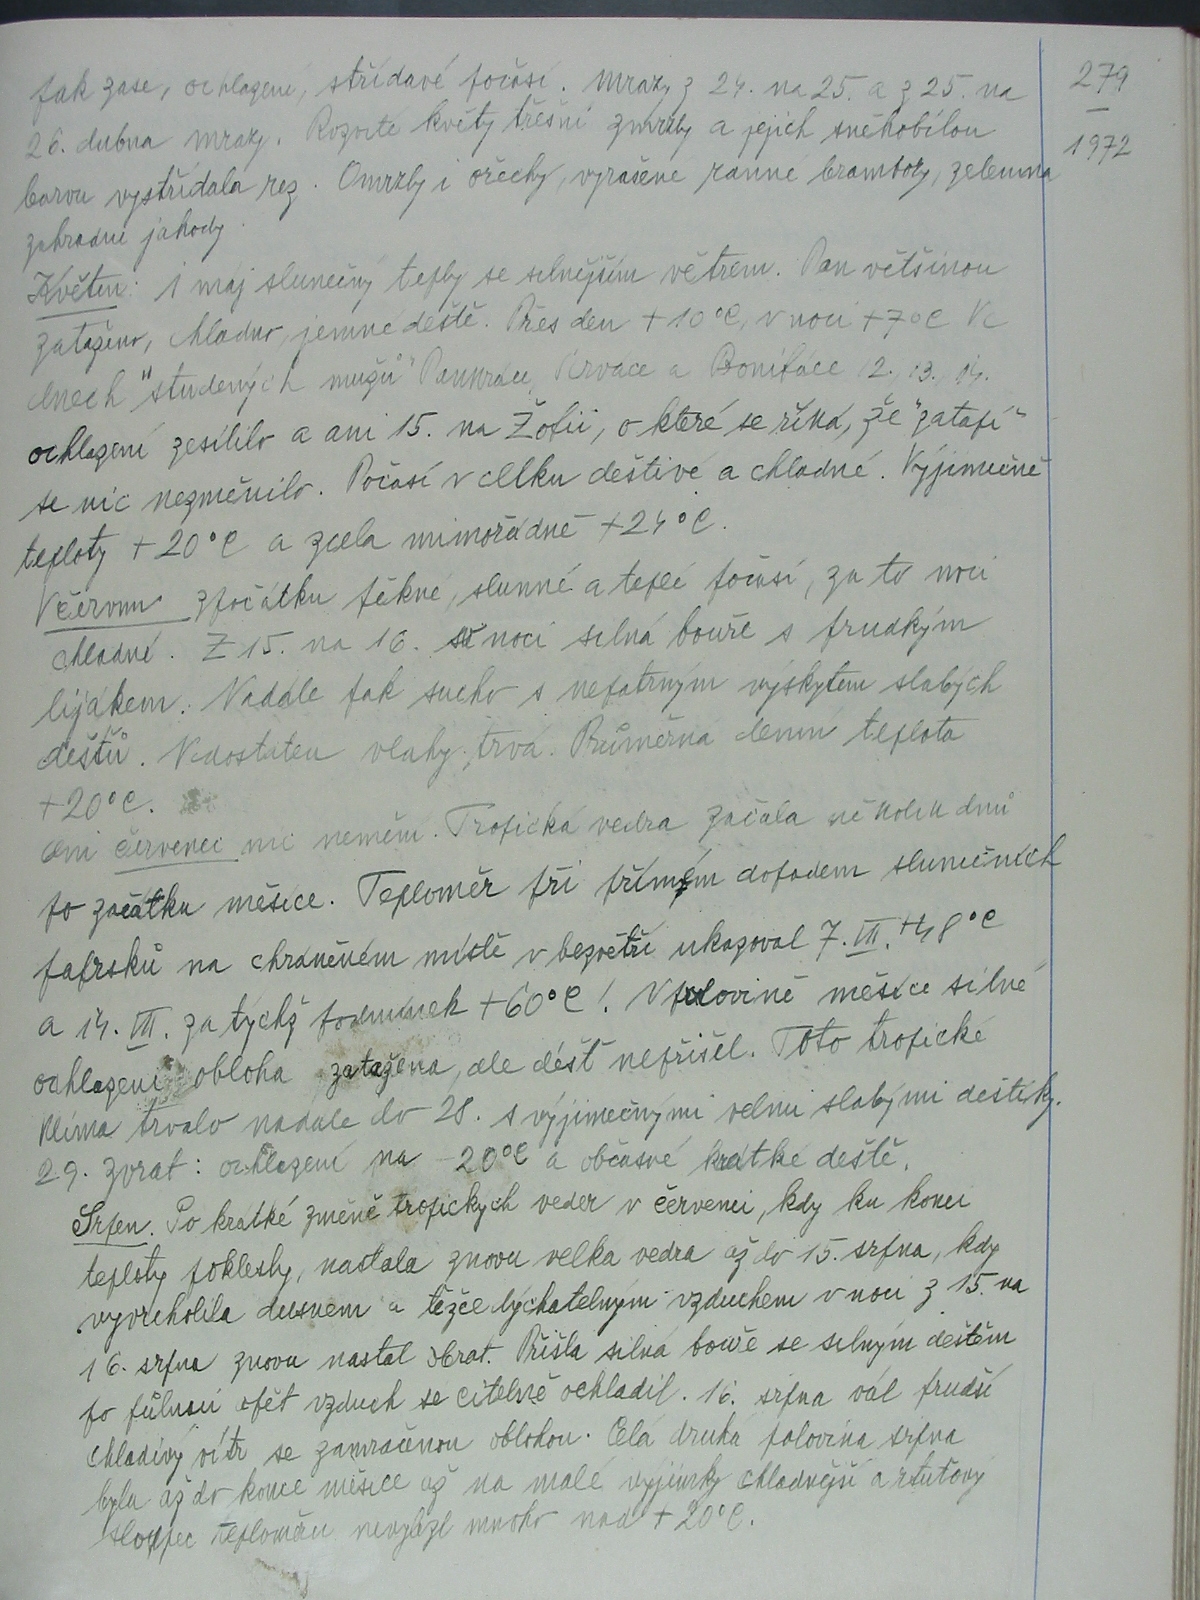 pak zase, ochlazení, střídavé počasí. Mrazy z 24. na 25. a z 25. na
26. dubna mrazy. Rozvité květy třešní zmrzly a jejich sněhobílou
barvu vystřídala rez. Omrzly i ořechy, vyrašené ranné brambory, zelenina
zahradní jahody.
Květen: 1 máj slunečný teplý se silnějším větrem. Pan většinou
zataženo, chladno, jemné deště. Přes den +10°C, v noci +7°C Ve
dnech "studených mužů" Pankráce, Serváce a Bonifáce 12., 13., 14.
ochlazení zesílilo a ani 15. na Žofii, o které se říká, že "zatopí"
se nic nezměnilo. Počasí v celku deštivé a chladné. Výjimečně
teploty +20°C a zcela mimořádně +24°C.
V červnu zpočátku pěkné, slunné a teplé počasí, za to noci
chladné. Z 15. na 16. v noci silná bouře s prudkým
lijákem. Nadále pak sucho s nepatrným výskytem slabých
dešťů. Nedostatek vláhy trvá. Průměrná denní teplota
+20°C.
Ani červenec nic nemění. Tropická vedra začala několik dnů
po začátku měsíce. Teploměr při přímém dopadem slunečních
paprsků na chráněném místě v bezvětří ukazoval 7. VII. +48°C
a 14. VII. za týchž podmínek +60°C! V polovině měsíce silné
ochlazení obloha zatažena, ale déšť nepřišel. Toto tropické
klima trvalo nadále do 28. s výjimečnými velmi slabými deštíky.
29. zvrat: ochlazení na -20°C a občasné krátké deště.
Srpen. Po krátké změně tropických veder v červenci, kdy ku konci
teploty poklesly, nastala znovu velka vedra až do 15. srpna, kdy
vyvrcholila dusnem a těžce dýchatelným vzduchem v noci z 15. na
16. srpna znovu nastal obrat. Přišla silná bouře se silným deštěm
po půlnoci opět vzduch se citelně ochladil. 16. srpna vál prudší
chladivý vítr se zamračenou oblohou. Celá druhá polovina srpna
byla až do konce měsíce až na malé vyjímky chladnější a rtuťový
sloupec teploměru nevylézl mnoho nad +20°C.
279
1972